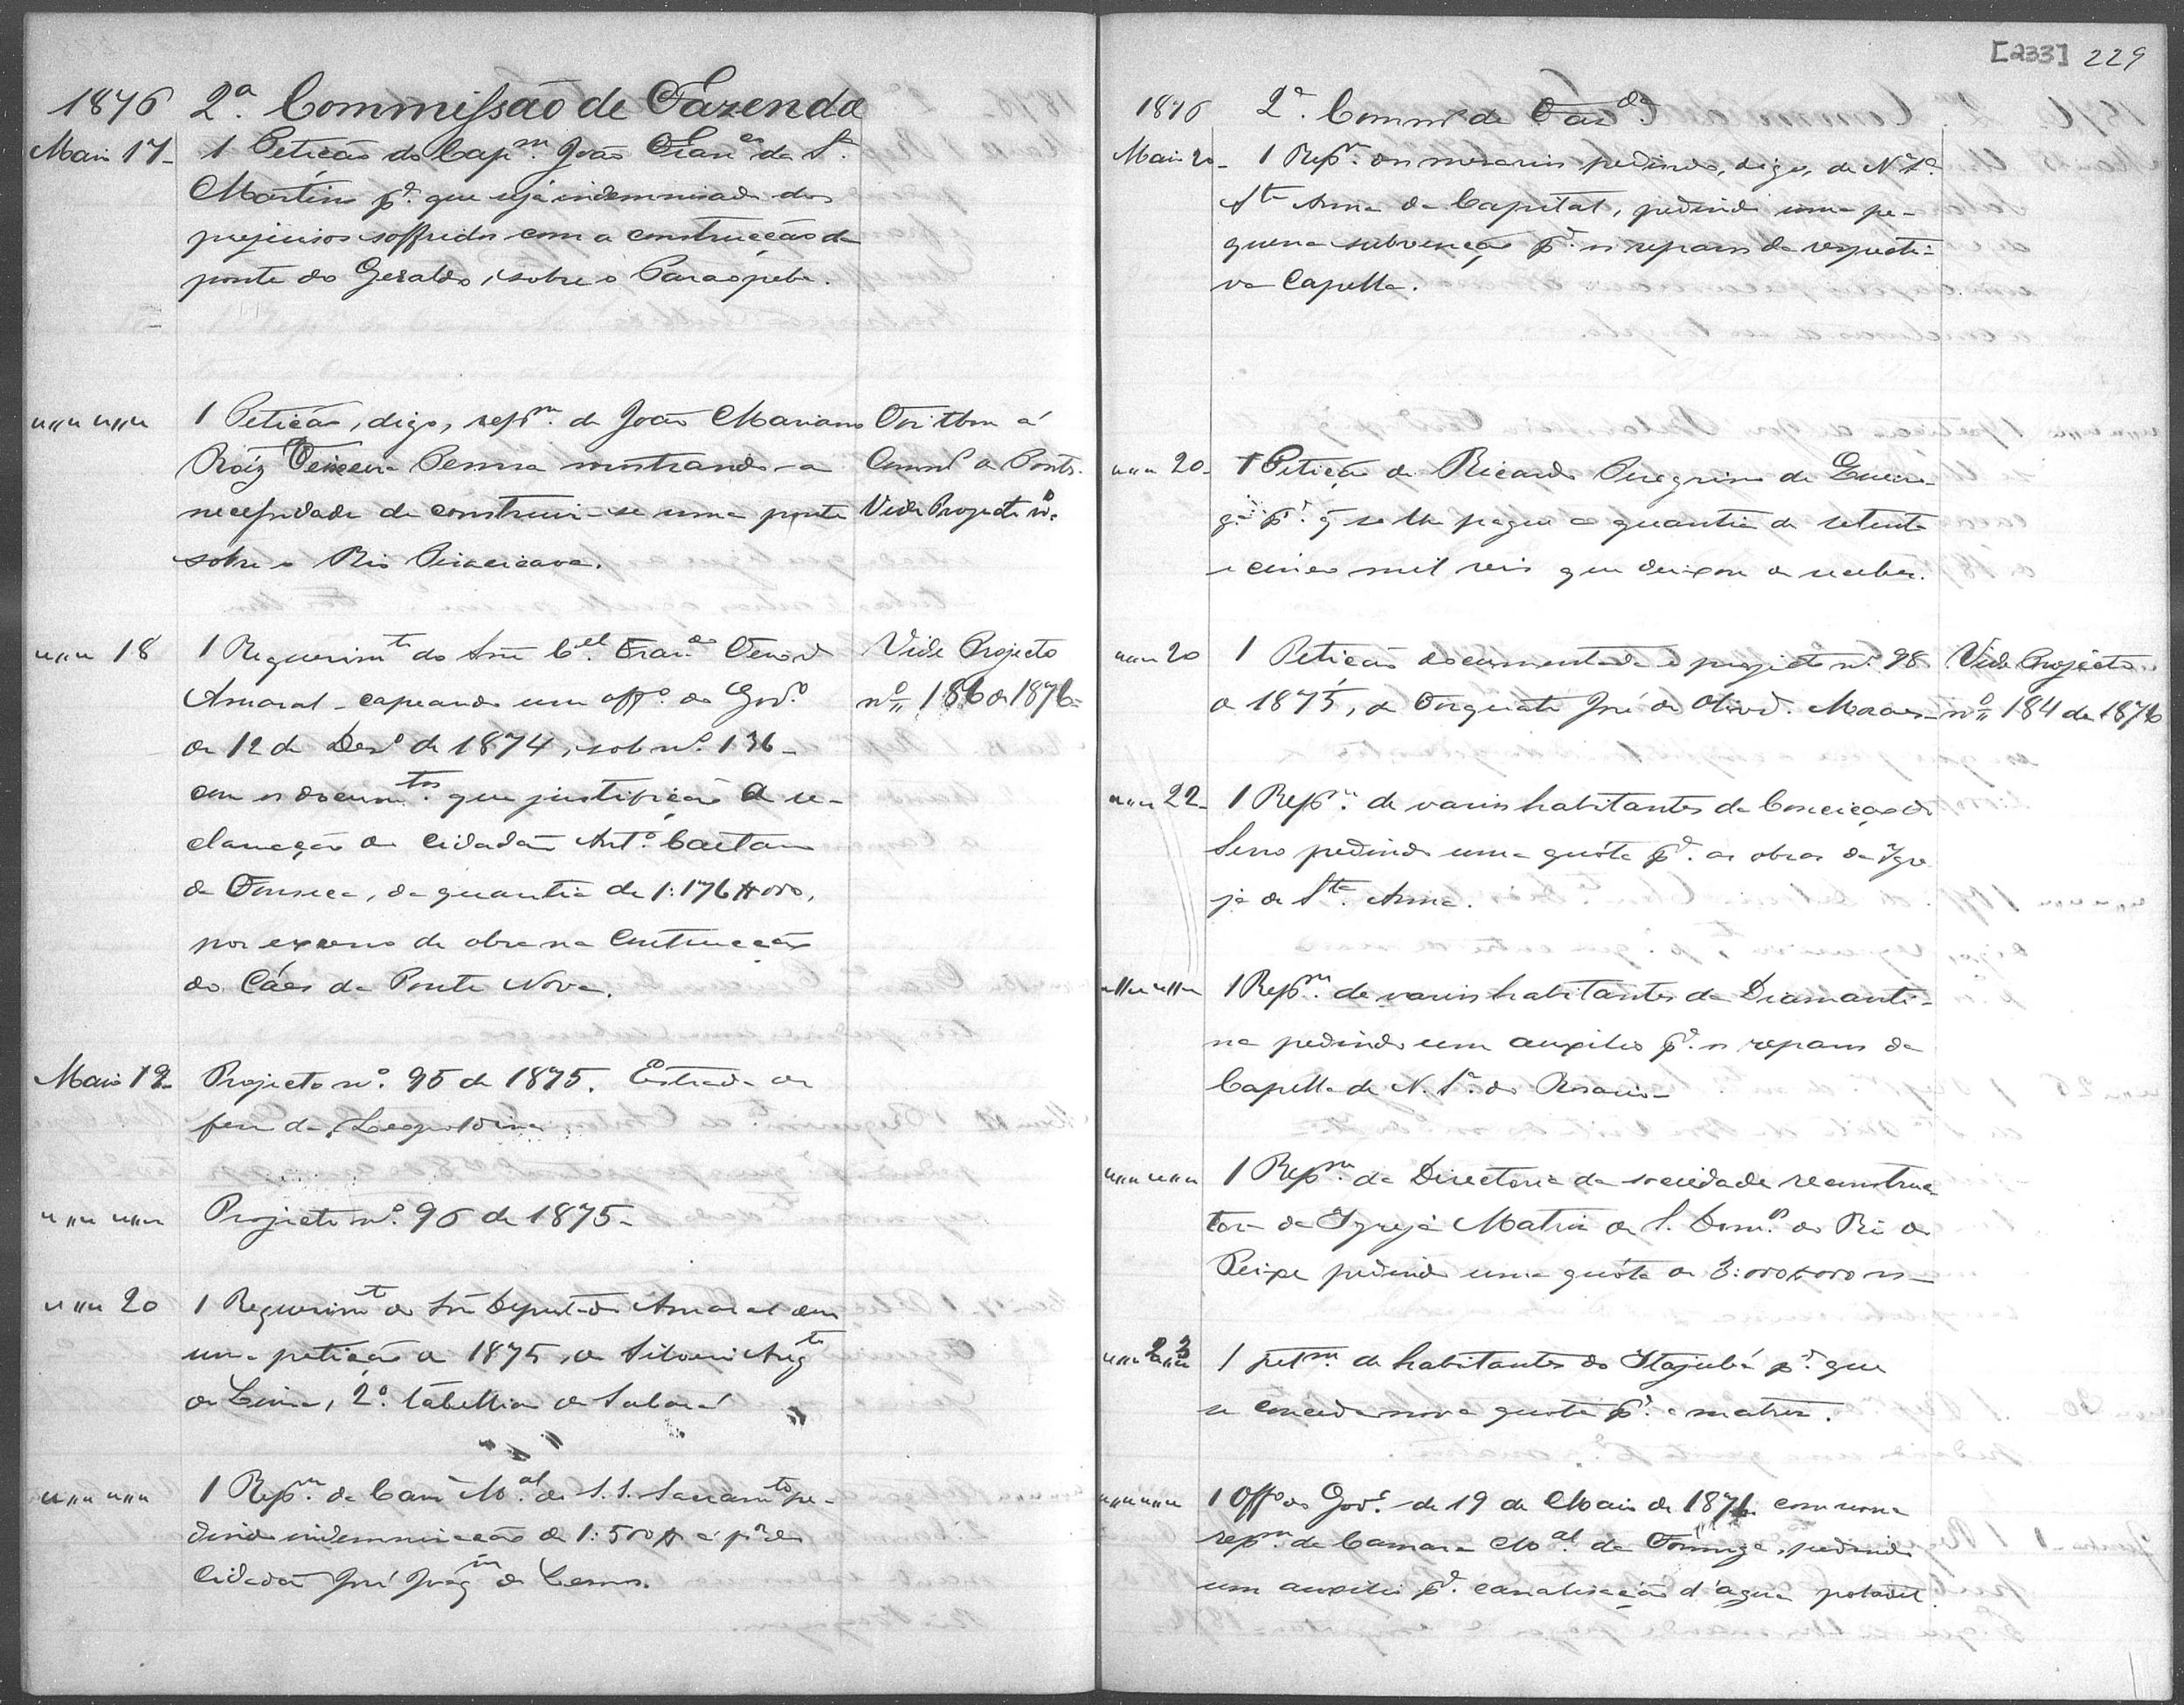 1876 2ª Commissão de Fazenda
Maio 17 - 1 Petição do Capm. João Franco da Sª
Martins pª que seja indemnisado dos
prejuisos soffridos com a construcção da
ponte do Geraldo, sobre o Paraopeba.
"" "" 1 Petição, digo, repm. de João Mariano Foi tbm á
Roiz Teixeira Penna mostrando a Commm de Ponts.
necessidade de construir-se uma ponte Vide Projecto nº
sobre o Rio Piracicava.
"" 18 1 Requerimto do Snr Cel Franco Amaral Vide Projecto
Amaral - capeando um offº do Govº nº 186 de 1876
de 12 de Dezº de 1874, sob nº 136 -
com os documtos que justificão a re-
clamação do cidadão Antº Caetano
da Fonseca, da quantia de 1:176$000,
por excesso de obra na Construcção
do Cáes da Ponte Nova.
Maio 19 Projecto nº 95 de 1875. Estrada de
ferro da Leopoldina
"" "" Projecto nº 96 de 1875 -
"" 20 1 Requerimto do Snr Deputado Amaral com
uma petição de 1875, de Silverio Augto
de Lima, 2º tabellião de Sabará
"" "" 1 Repm. da Camª Mal do S.S. Sacramto pe-
dindo indemnisação de 1:500$ a pr do
Cidadão José Joaqm de Lemos.
[233] 229
1876 2ª Commm de Fazdª
Maio 20 - 1 Repm. dos mesarios pedindo, digo, de N. Sª
Sta Anna da Capital, pedindo uma pe-
quena subvenção pª os reparos da respecti-
va Capella.
"" 20 - 1 Petição de Ricardo Peregrino de
pª q se lhe pague a quantia de setenta
e cinco mil reis que deixou de receber.
"" 20 1 Petição documentada e projecto nº 98 Vide Projecto
de 1875, de Torquato José de Olivrª Moraes - nº 184 de 1876
"" 22 - 1 Repm. de varios habitantes da Conceição do
Serro pedindo uma quóta pª as obras da Igre
ja de Sta Anna.
"" "" 1 Repm. de varios habitantes da Diamanti-
na pedindo um auxilio pª os reparos da
Capella de N. Sª do Rosario -
"" "" 1 Repm. da Directoria da sociedade reconstruc
tora da Igreja Matriz de S. Domos do Rio do
Peixe pedindo uma quóta de 3:000$000 rs -
"" 23 1 petm. de habitantes do Itajubá pª que
se conceda nova quota pª a matriz.
"" "" 1 Offº do Govº de 19 de Maio de 1876 com uma
repm. da Camara Mal da Formiga, pedindo
um auxilio pª canalisação d'agua potavel.